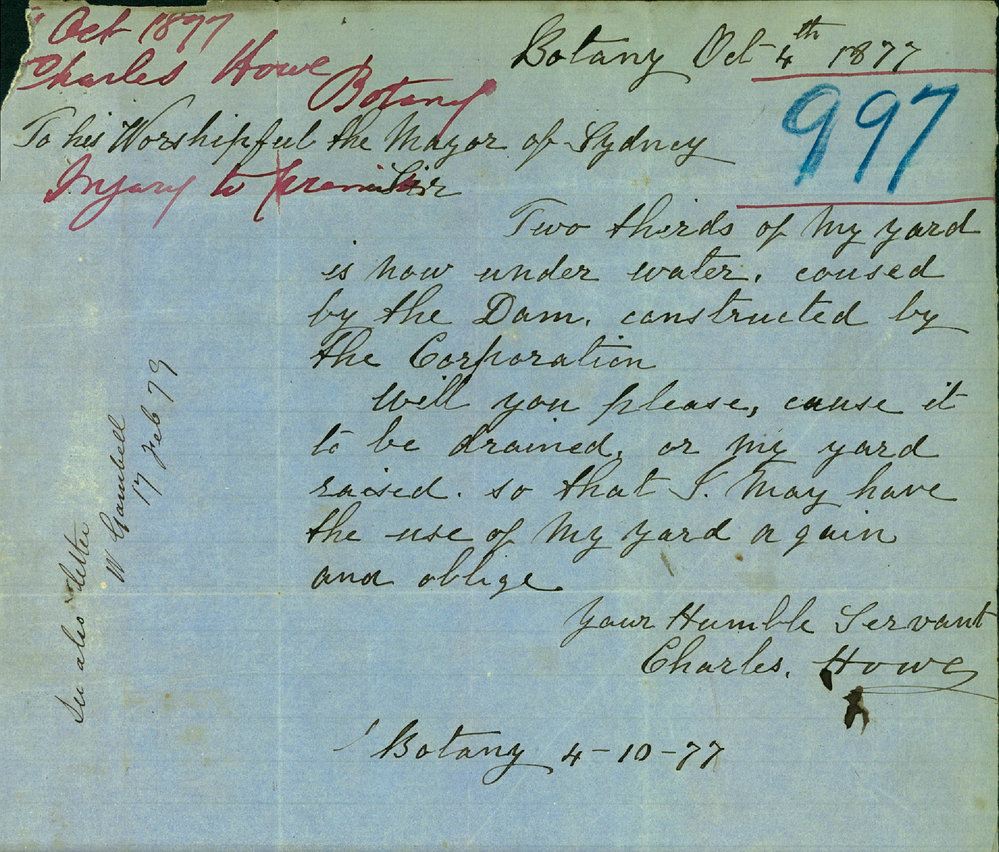 Oct 1877
Charles Howe
Botany
Botany Oct 4th 1877
997
To his Worshipful the Mayor of Sydney
Injury to premises
Sir
Two thirds of my yard
is now under water. coused
by the Dam. constructed by
the Corporation
Will you please, cause it
to be drained, or my yard
raised. so that I. May have
the use of My yard again
and oblige
Your Humble Servant
Charles. Howe
Botany 4-10-77
See also letter
W Gambell
17 Feb 79